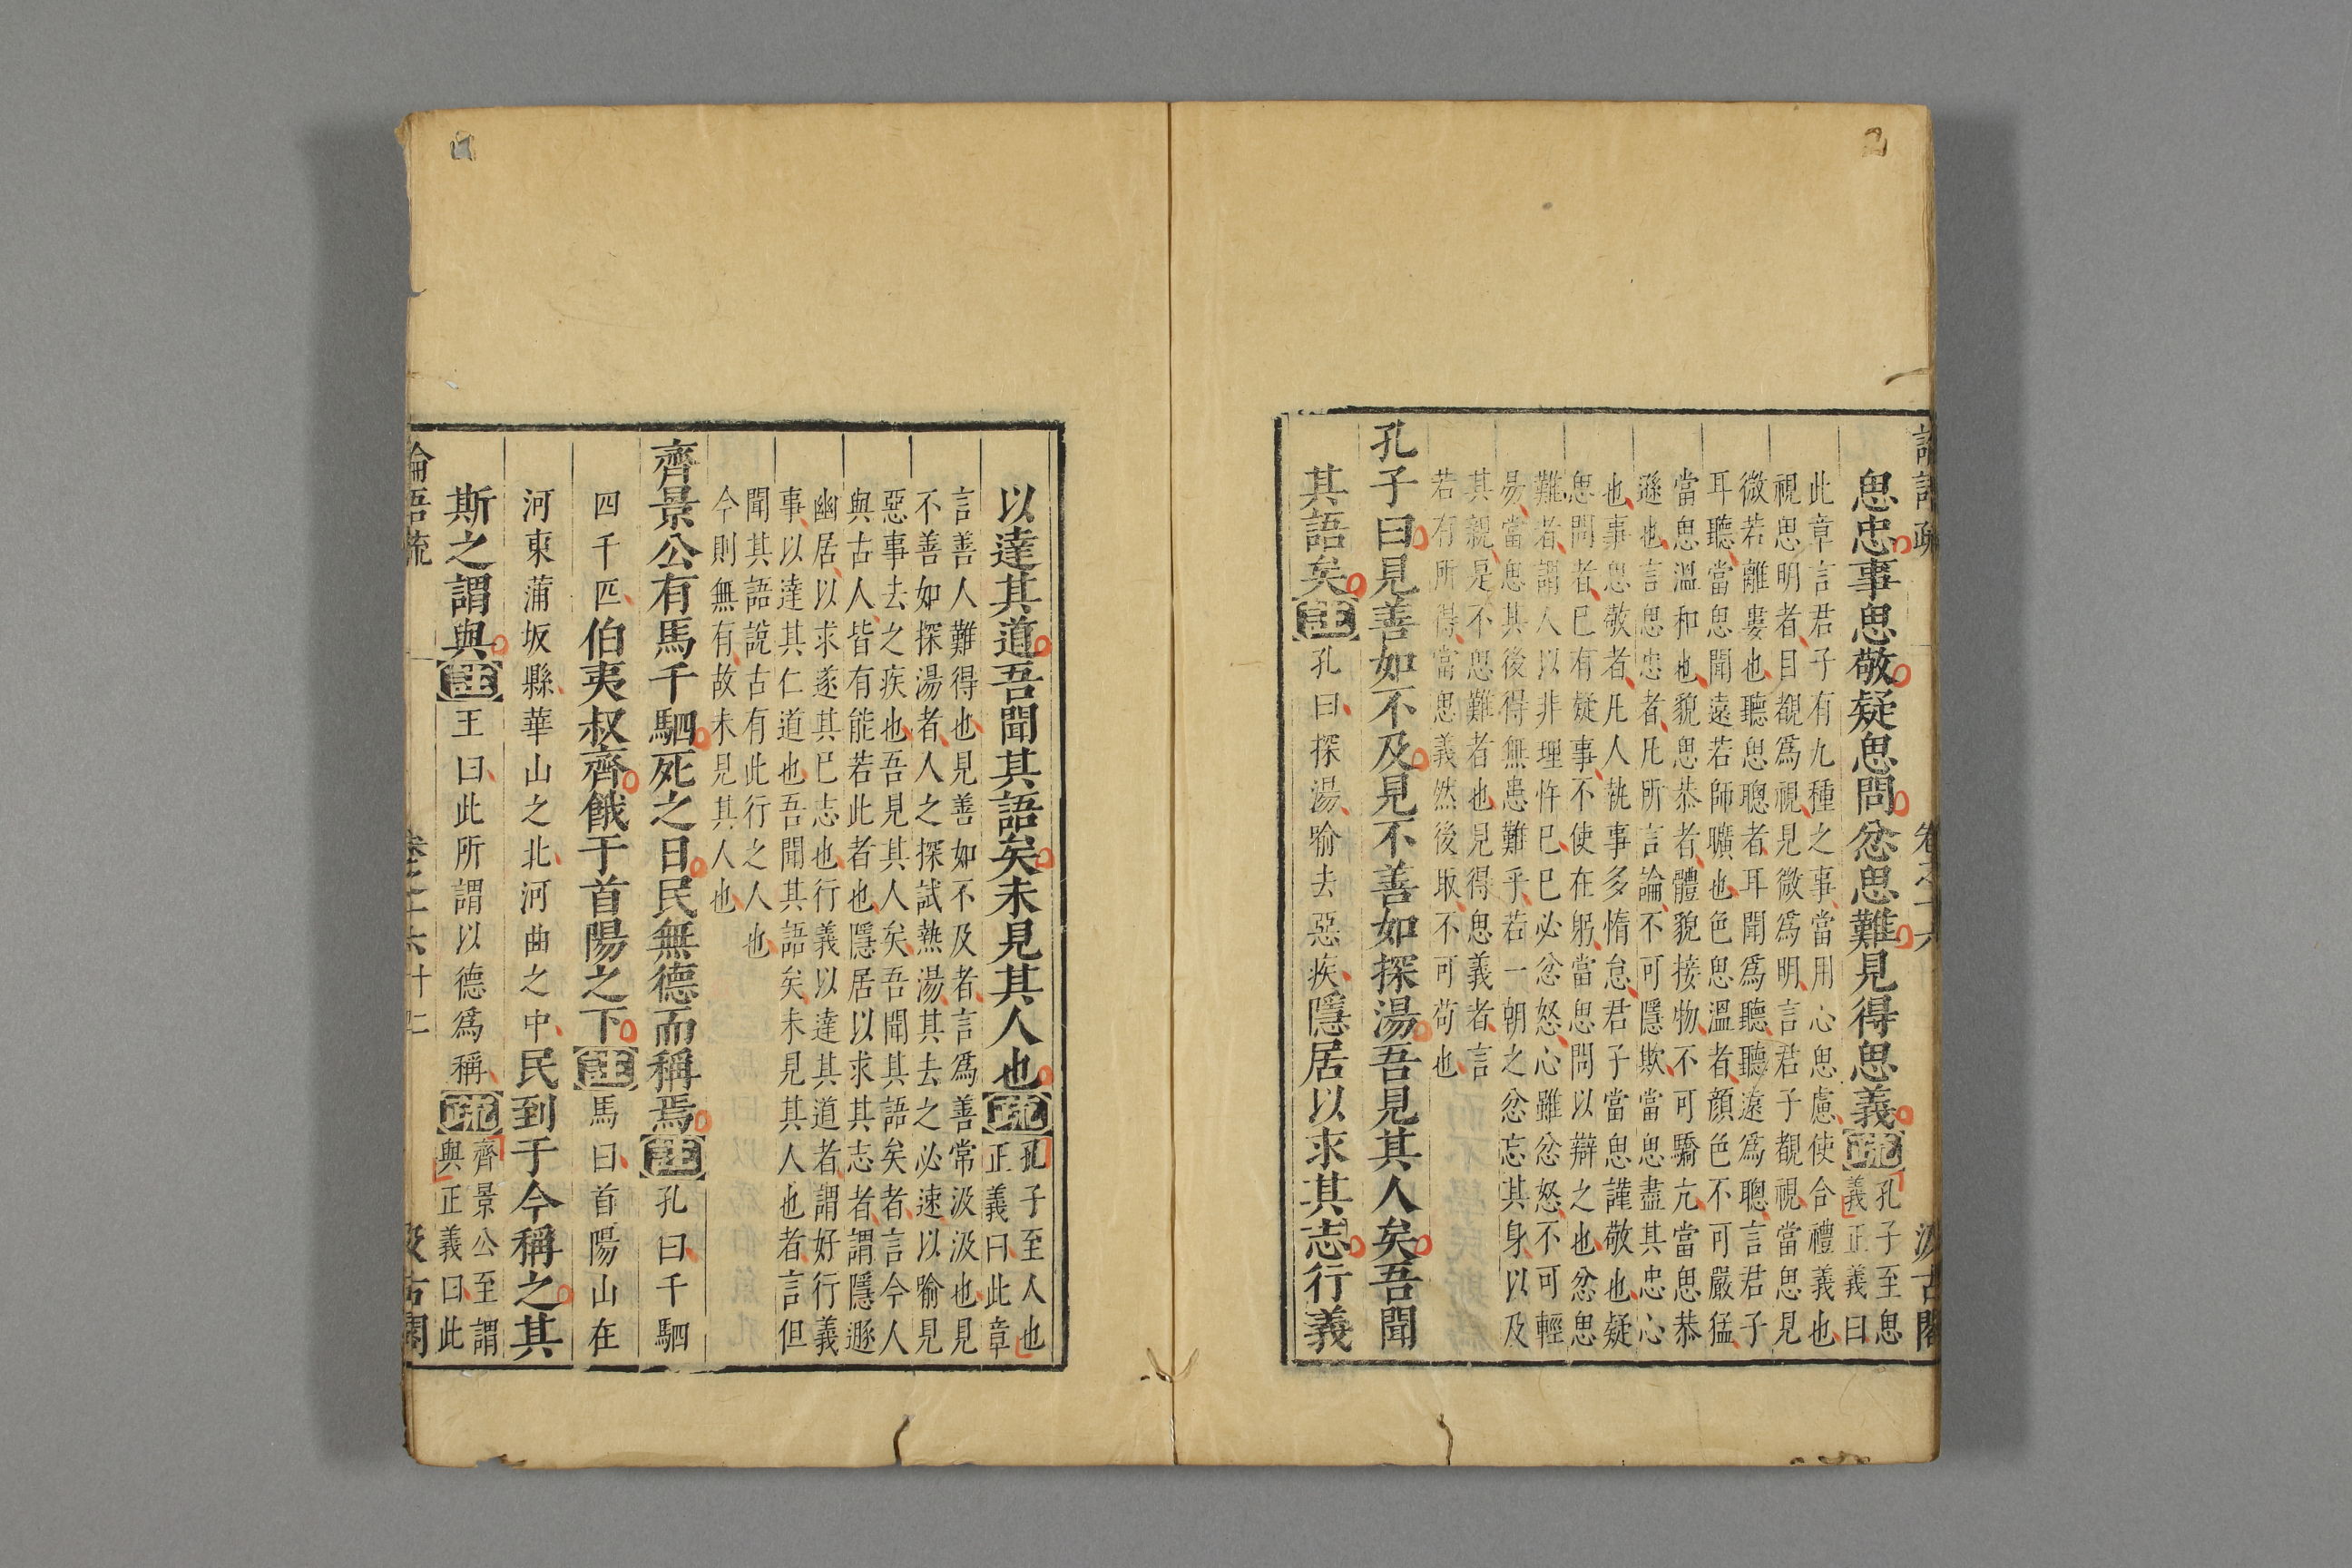 思忠事思敬疑思問忿思難見得思義疏孔子至思
義正義曰
此章言君子有九種之事當用心思慮使合禮義也
視思明者目覩爲視見微爲明言君子覩視當思見
微若離婁也聽思聰者耳聞爲聽聽遠爲聰言君子
耳聽當思聞遠若師曠也色思溫者顏色不可嚴猛
當思溫和也貌思恭者體貌接物不可驕亢當思恭
遜也言思忠者凡所言論不可隱欺當思盡其忠心
也事思敬者凡人執事多惰怠君子當思謹敬也疑
思問者已有疑事不使在躬當思問以辯之也忿思
難者謂人以非理忤已已必忿怒心雖忿怒不可輕
易當思其後得無患難乎若一朝之忿忘其身以及
其親是不思難者也見得思義者言
若有所得當思義然後取不可苟也
孔子曰見善如不及見不善如探湯吾見其人矣吾聞
其語矣註孔曰探湯喻去惡疾隱居以求其志行義
以達其道吾聞其語矣未見其人也疏孔子至人也
正義曰此章
言善人難得也見善如不及者言爲善常汲汲也見
不善如探湯者人之探試熱湯其去之必速以喻見
惡事去之疾也吾見其人矣吾聞其語矣者言今人
與古人皆有能若此者也隱居以求其志者謂隱遯
幽居以求遂其已志也行義以達其道者謂好行義
事以達其仁道也吾聞其語矣未見其人也者言但
聞其語說古有此行之人也
今則無有故未見其人也
齊景公有馬千駟死之日民無德而稱焉註孔曰千駟
四千匹伯夷叔齊餓于首陽之下註馬曰首陽山在
河東蒲坂縣華山之北河曲之中民到于今稱之其
斯之謂與註王曰此所謂以德爲稱疏齊景公至謂
與正義曰此